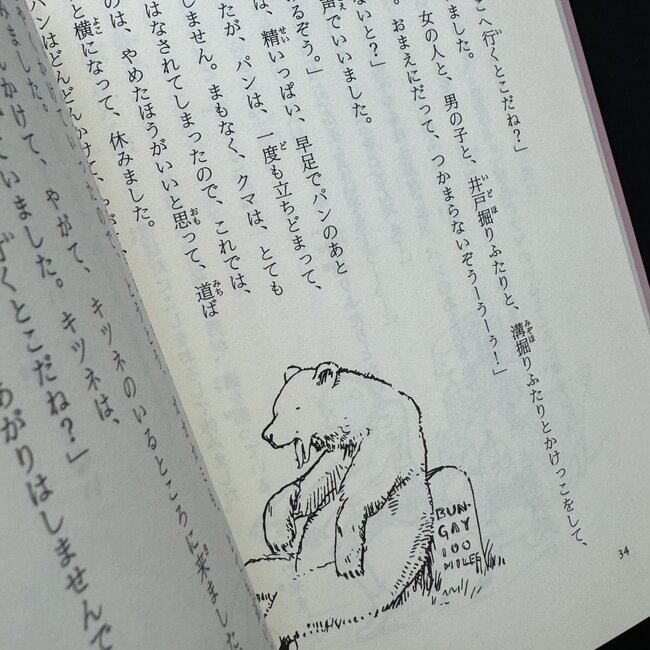 こへ行くとこだね？」
ました。
女の人と、男の子と、井戸掘りふたりと、溝掘りふたりとかけっこをして、
おまえにだって、つかまらないぞうーうーう！」
ないと？」
声でいいました。
るぞう。」
は、精いっぱい、早足でパンのあと
たが、パンは、一度も立ちどまって、
しません。まもなく、クマは、とても
はなされてしまったので、これでは、
のは、やめたほうがいいと思って、道ば
と横になって、休みました。
パンはどんどんかけて、
いかけて、やがて、キツネのいるところに来ました。
ました。キツネは、
行くとこだね？」
あがりはしませんで
BUN-
GAY
100
MILES
34